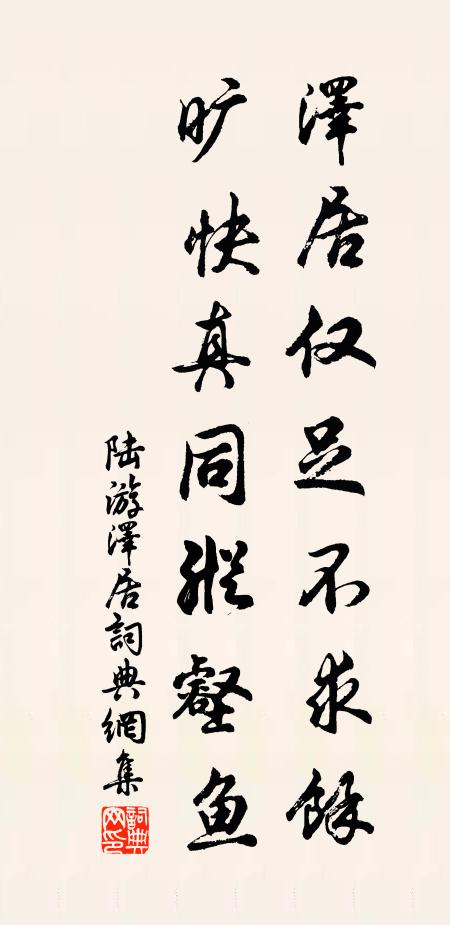 澤居仅足不求餘
旷快真同縱壑鱼
陆游澤居詞典網集
詞典网印